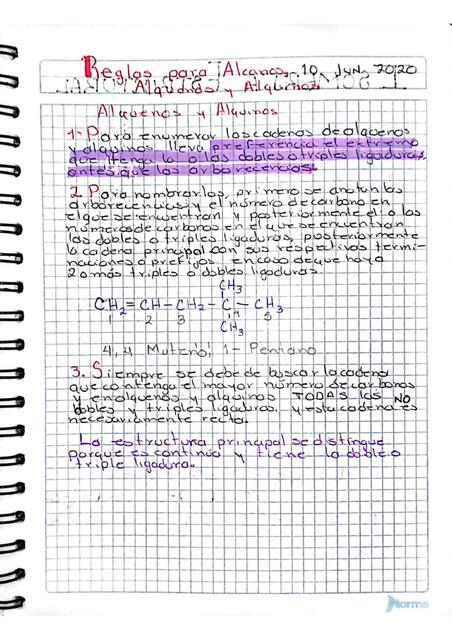 Reglas para Alcanos, 10, Jun, 2020
Alquenos y Alquinos
Alquenos y Alquinos
1- Para enumerar las cadenas de alquenos
y alquinos lleva preferencia el extremo
que tenga la o las dobles o triples ligaduras
antes que los arborecencias.
2. Para nombrarlos, primero se anotan las
arborecencias y el número de carbono en
el que se encuentran y posteriormente el o los
números de carbonos en el que se encuentran
las dobles o triples ligaduras, posteriormente
la cadena principal con sus respectivos termi-
naciones o prefijos en caso de que haya
2 o más triples o dobles ligaduras.
CH3
CH2=CH-CH2-C-CH3
1 2 3 4 5
CH3
4,4 1-
3. Siempre se debe de buscar la cadena
que contenga el mayor número de carbonos
y en alquenos y alquinos TODAS las
dobles y triples ligaduras, y esta cadena NO es
necesariamente recta.
La estructura principal se distingue
porque es continua y tiene la doble o
triple ligadura.
Norma